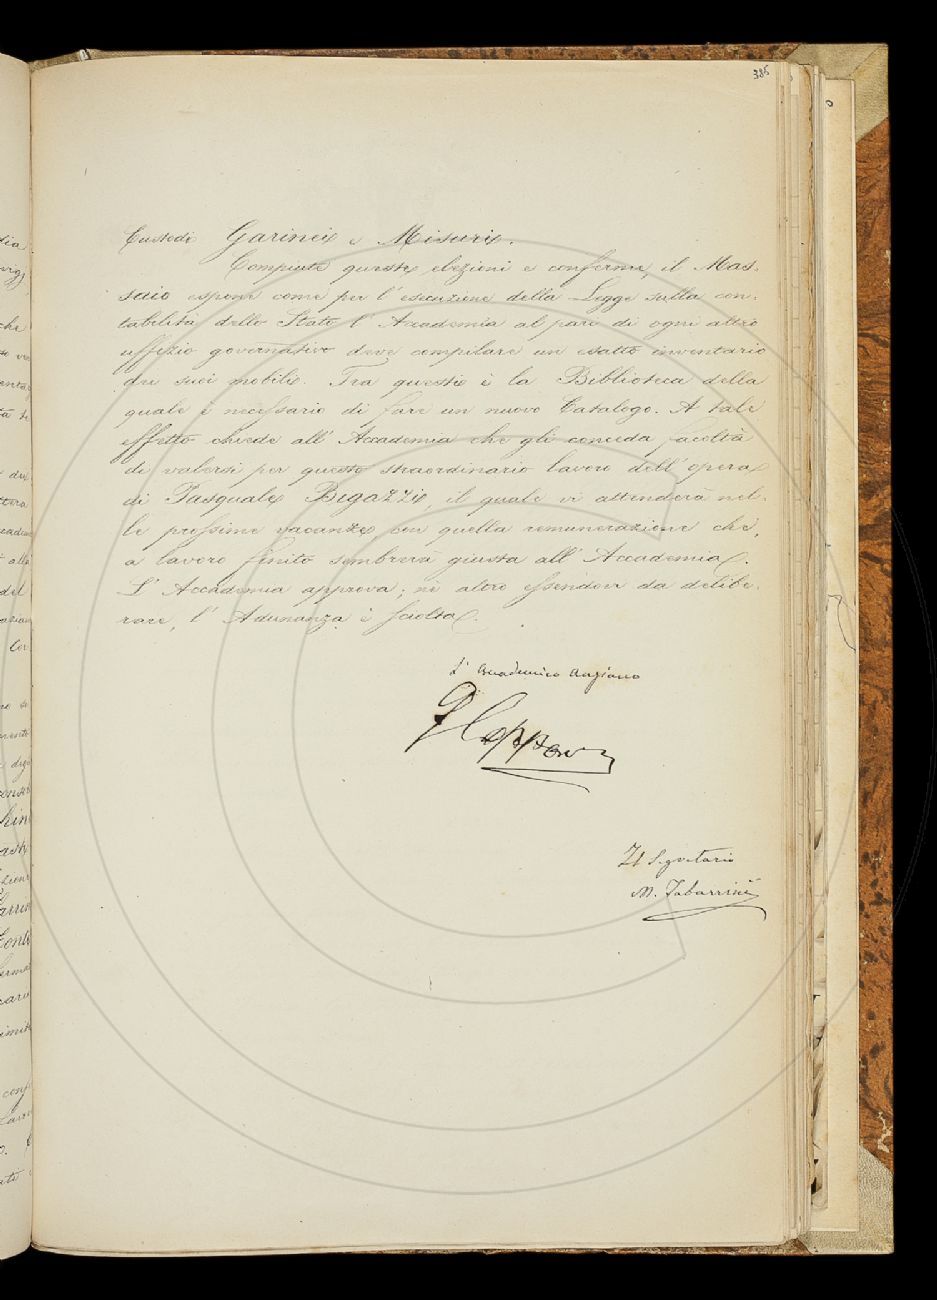 385
Custodi Garinei e Misuri.
Compiute queste elezioni e conferme, il Mas-
saio espone come per l'esecuzione della Legge sulla con-
tabilità dello Stato l'Accademia al pari di ogni altro
uffizio governativo deve compilare un esatto inventario
dei suoi mobili. Tra questi è la Biblioteca della
quale è necessario di fare un nuovo Catalogo. A tale
effetto chiede all'Accademia che gli conceda facoltà
di valersi per questo straordinario lavoro dell'opera
di Pasquale Bigazzi, il quale vi attenderà nel-
le prossime vacanze, con quella remunerazione che,
a lavoro finito sembrerà giusta all'Accademia.
L'Accademia approva; nè altro essendovi da delibe-
rare, l'Adunanza è sciolta.
L'Accademico Anziano
G Capponi
Il Segretario
M. Tabarrini